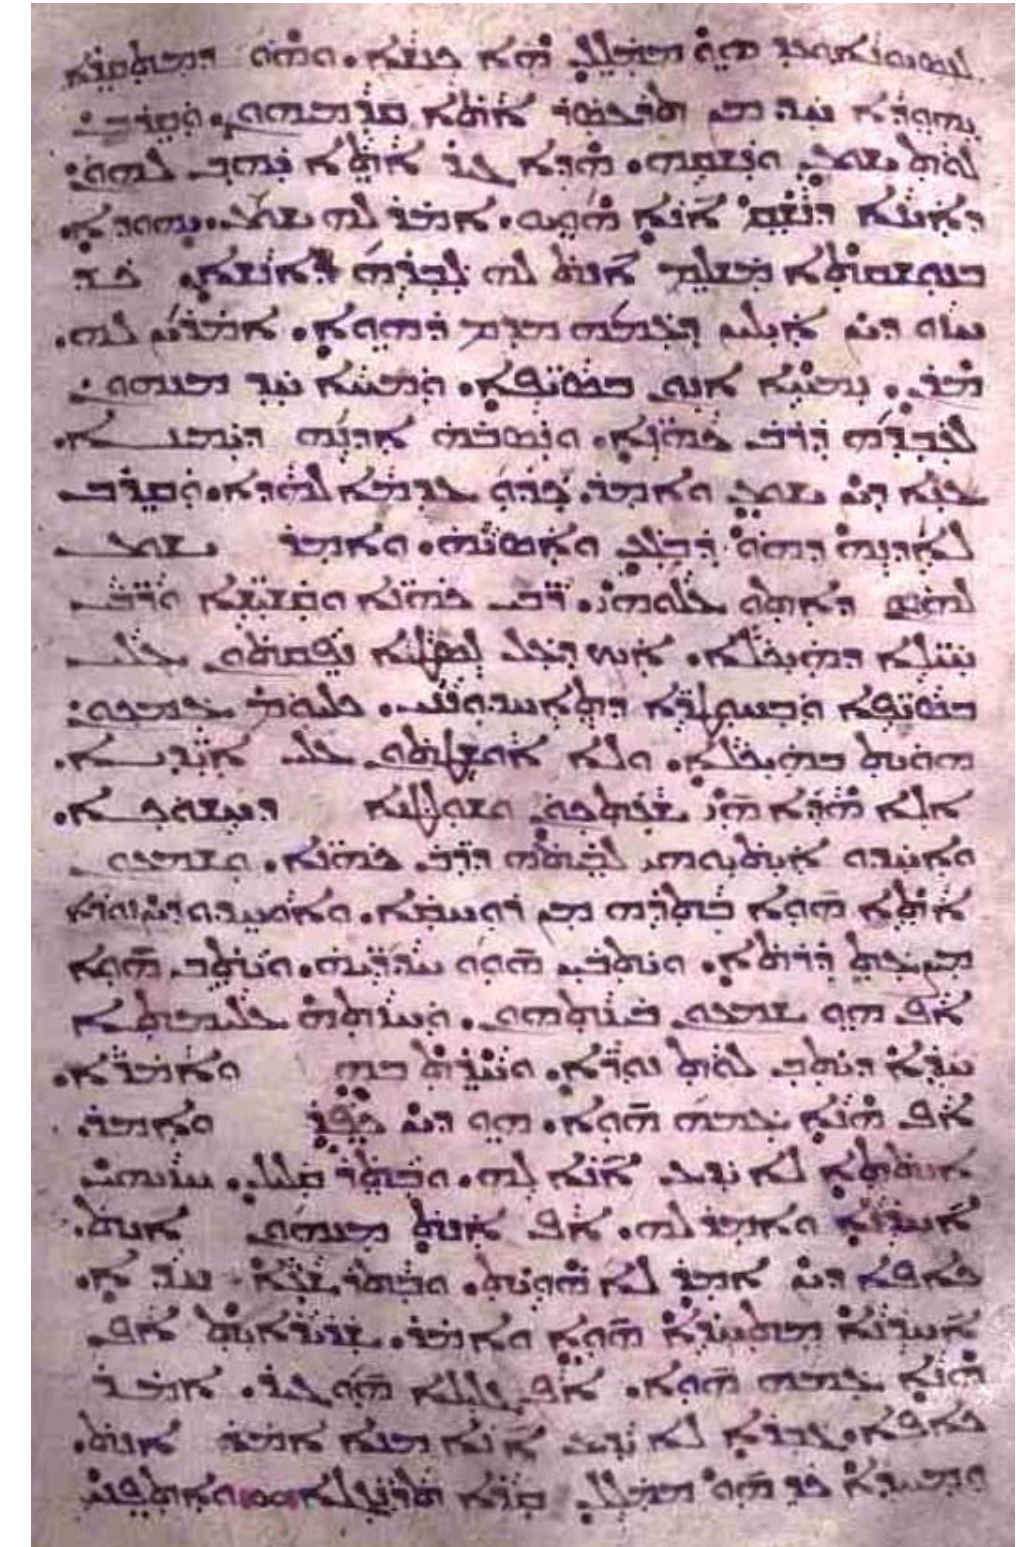 ܠܢܣܝܘܢܐ ܘܥܕ ܗܘ ܡܡܠܠ ܗܐ ܟܢܫܐ. ܘܗܘ ܕܡܬܩܪܐ
ܝܗܘܕܐ ܚܕ ܡܢ ܬܪܥܣܪ ܐܬܐ ܩܕܡܝܗܘܢ. ܘܩܪܒ
ܠܘܬ ܝܫܘܥ ܘܢܫܩܗ. ܗܕܐ ܓܝܪ ܐܬܐ ܝܗܒ ܠܗܘܢ
ܕܐܝܢܐ ܕܢܫܩ ܐܢܐ ܗܘܝܘ. ܐܡܪ ܠܗ ܝܫܘܥ. ܝܗܘܕܐ.
ܒܢܘܫܩܬܐ ܡܫܠܡ ܐܢܬ ܠܗ ܠܒܪܗ ܕܐܢܫܐ. ܟܕ
ܚܙܘ ܕܝܢ ܐܝܠܝܢ ܕܥܡܗ ܡܕܡ ܕܗܘܐ. ܐܡܪܝܢ ܠܗ.
ܡܪܢ. ܢܡܚܐ ܐܢܘܢ ܒܣܝܦܐ. ܘܡܚܐ ܚܕ ܡܢܗܘܢ
ܠܥܒܕܗ ܕܪܒ ܟܗܢܐ. ܘܢܣܒܗ ܐܕܢܗ ܕܝܡܝܢܐ.
ܥܢܐ ܕܝܢ ܝܫܘܥ ܘܐܡܪ. ܟܕܘ ܥܕܡܐ ܠܗܕܐ. ܘܩܪܒ
ܠܐܕܢܗ ܕܗܘ ܕܒܠܥ ܘܐܣܝܗ. ܘܐܡܪ ܝܫܘܥ
ܠܗܢܘܢ ܕܐܬܘ ܥܠܘܗܝ. ܪܒܝ ܟܗܢܐ ܘܩܫܝܫܐ ܘܪܒܝ
ܚܝܠܐ ܕܗܝܟܠܐ. ܐܝܟ ܕܥܠ ܠܣܛܝܐ ܢܦܩܬܘܢ ܥܠܝ
ܒܣܝܦܐ ܘܒܚܘܛܪܐ ܕܬܐܚܕܘܢܢܝ. ܟܠܝܘܡ ܥܡܟܘܢ
ܗܘܝܬ ܒܗܝܟܠܐ. ܘܠܐ ܐܘܫܛܬܘܢ ܥܠܝ ܐܝܕܝܐ.
ܐܠܐ ܗܕܐ ܗܝ ܫܥܬܟܘܢ ܘܫܘܠܛܢܐ ܕܚܫܘܟܐ.
ܘܐܚܕܘ ܐܝܬܝܘܗܝ ܠܒܝܬܗ ܕܪܒ ܟܗܢܐ. ܘܫܡܥܘܢ
ܐܬܐ ܗܘܐ ܒܬܪܗ ܡܢ ܪܘܚܩܐ. ܐܘܚܕܘ ܕܝܢ ܢܘܪܐ
ܡܨܥܬ ܕܪܬܐ. ܘܝܬܒܝܢ ܗܘܘ ܚܕܪܝܗ. ܘܝܬܒ ܗܘܐ
ܐܦ ܗܘ ܫܡܥܘܢ ܒܝܢܬܗܘܢ. ܘܚܙܬܗ ܥܠܝܡܬܐ
ܚܕܐ ܕܝܬܒ ܠܘܬ ܢܘܪܐ. ܘܚܪܬ ܒܗ ܘܐܡܪܐ.
ܐܦ ܗܢܐ ܥܡܗ ܗܘܐ. ܗܘ ܕܝܢ ܟܦܪ ܘܐܡܪ.
ܐܢܬܬܐ ܠܐ ܝܕܥ ܐܢܐ ܠܗ. ܘܒܬܪ ܩܠܝܠ. ܚܙܝܗܝ
ܐܚܪܢܐ ܘܐܡܪ ܠܗ. ܐܦ ܐܢܬ ܡܢܗܘܢ ܐܢܬ.
ܟܐܦܐ ܕܝܢ ܐܡܪ ܠܐ ܗܘܝܬ. ܘܒܬܪ ܫܥܐ ܚܕܐ.
ܐܚܪܢܐ ܡܬܚܪܐ ܗܘܐ ܘܐܡܪ. ܫܪܝܪܐܝܬ ܐܦ
ܗܢܐ ܥܡܗ ܗܘܐ. ܐܦ ܓܠܝܠܝܐ ܗܘ ܓܝܪ. ܐܡܪ
ܟܐܦܐ. ܓܒܪܐ ܠܐ ܝܕܥ ܐܢܐ ܡܢܐ ܐܡܪ ܐܢܬ.
ܘܡܚܕܐ ܟܕ ܗܘ ܡܡܠܠ ܩܪܐ ܬܪܢܓܠܐ ܘܐܬܦܢܝ